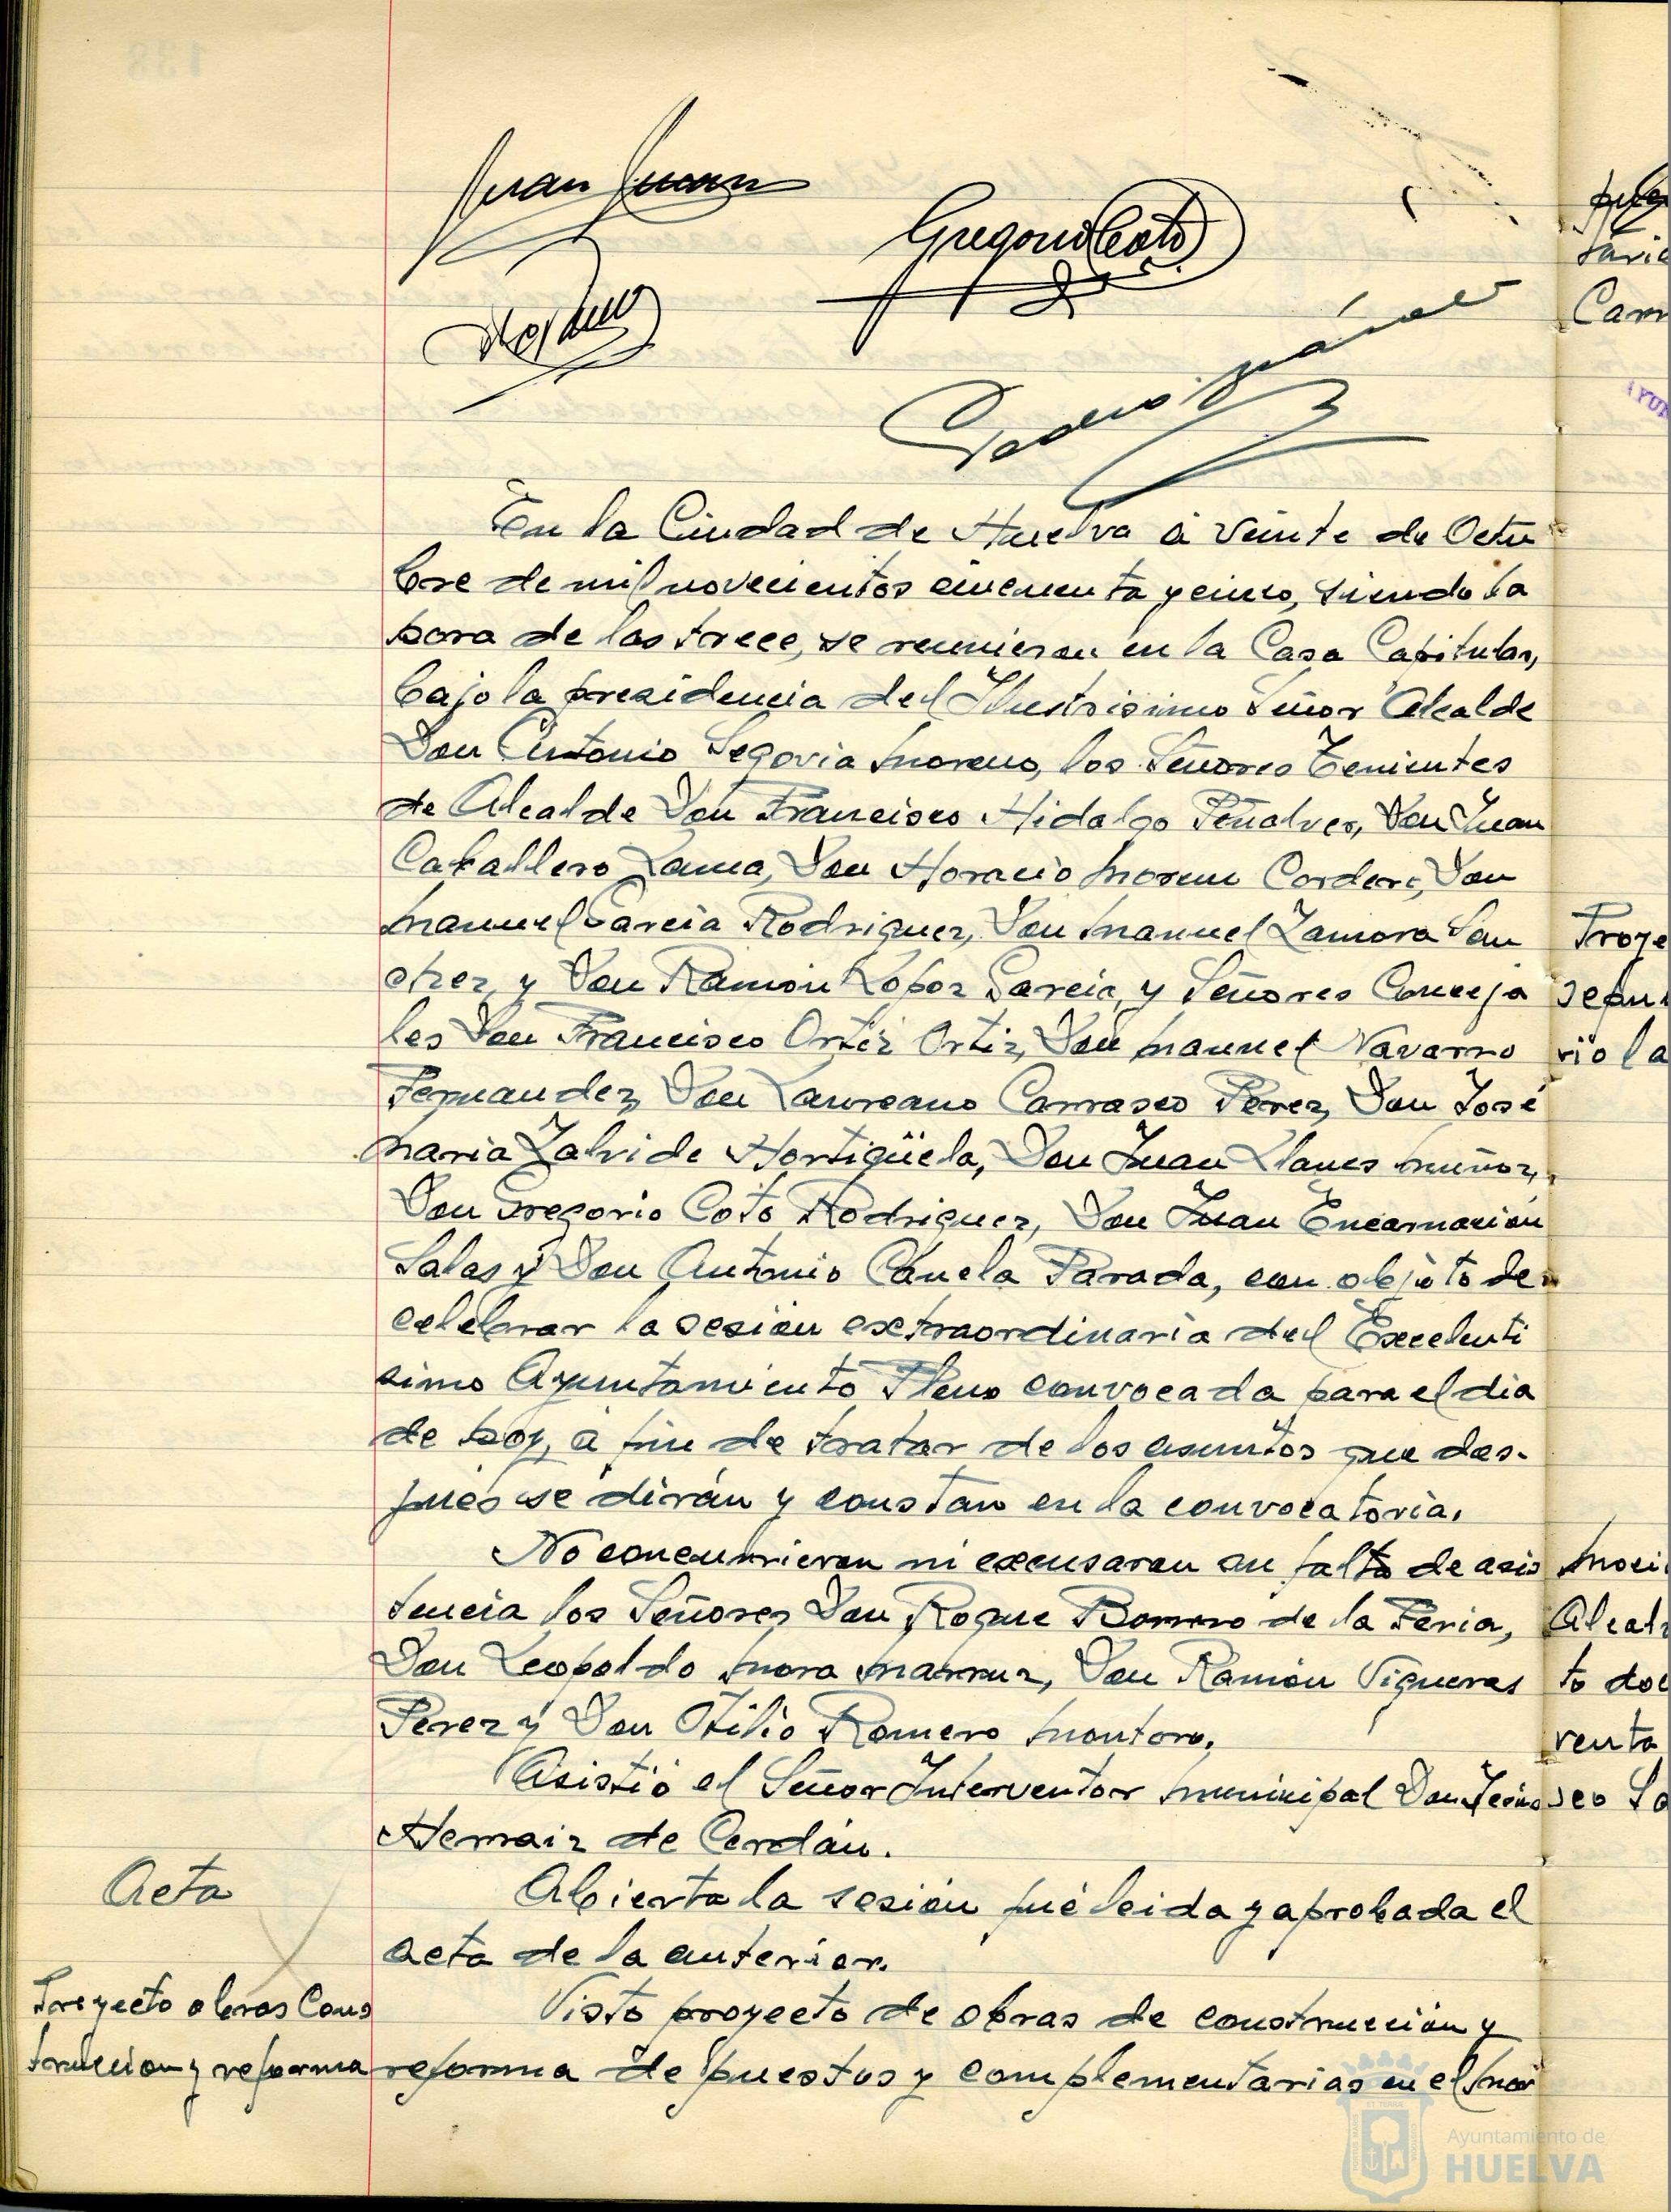 Gregorio Coto
En la Ciudad de Huelva á veinte de Octu
bre de mil novecientos cincuenta y cinco, siendo la
hora de las trece, se reunieron en la Casa Capitular,
bajo la presidencia del Ilustrisimo Señor Alcalde
Don Antonio Segovia Moreno, los Señores Tenientes
de Alcalde Don Francisco Hidalgo Peñalver, Don Juan
Caballero Lama, Don Horacio Moreno Cordero, Don
Manuel Garcia Rodriguez, Don Manuel Zamora San
chez y Don Ramón López Garcia, y Señores Conceja
les Don Francisco Ortiz Ortiz, Don Manuel Navarro
Fernandez, Don Laureano Carrasco Perez, Don José
Maria Zalvide Hortigüela, Don Juan Llanes Muñoz,
Don Gregorio Coto Rodriguez, Don Juan Encarnación
Salas y Don Antonio Canela Parada, con objeto de
celebrar la sesión extraordinaria del Excelenti
simo Ayuntamiento Pleno convocada para el dia
de hoy, á fin de tratar de los asuntos que des-
pués se dirán y constan en la convocatoria.
No concurrieron ni excusaron su falta de asis
tencia los Señores Don Roque Romero de la Feria,
Don Leopoldo Mora, Don Ramón Vigueras
Perez y Don Otilio Romero Montoro.
Asistió el Señor Interventor Municipal Don
Hernaiz de Cerdán.
Acta
Abierta la sesión fué leida y aprobada el
acta de la anterior.
Proyecto obras Cons
trucción y reforma
Visto proyecto de obras de construcción y
reforma de puestos y complementarias en el Mer
Ayuntamiento de
HUELVA